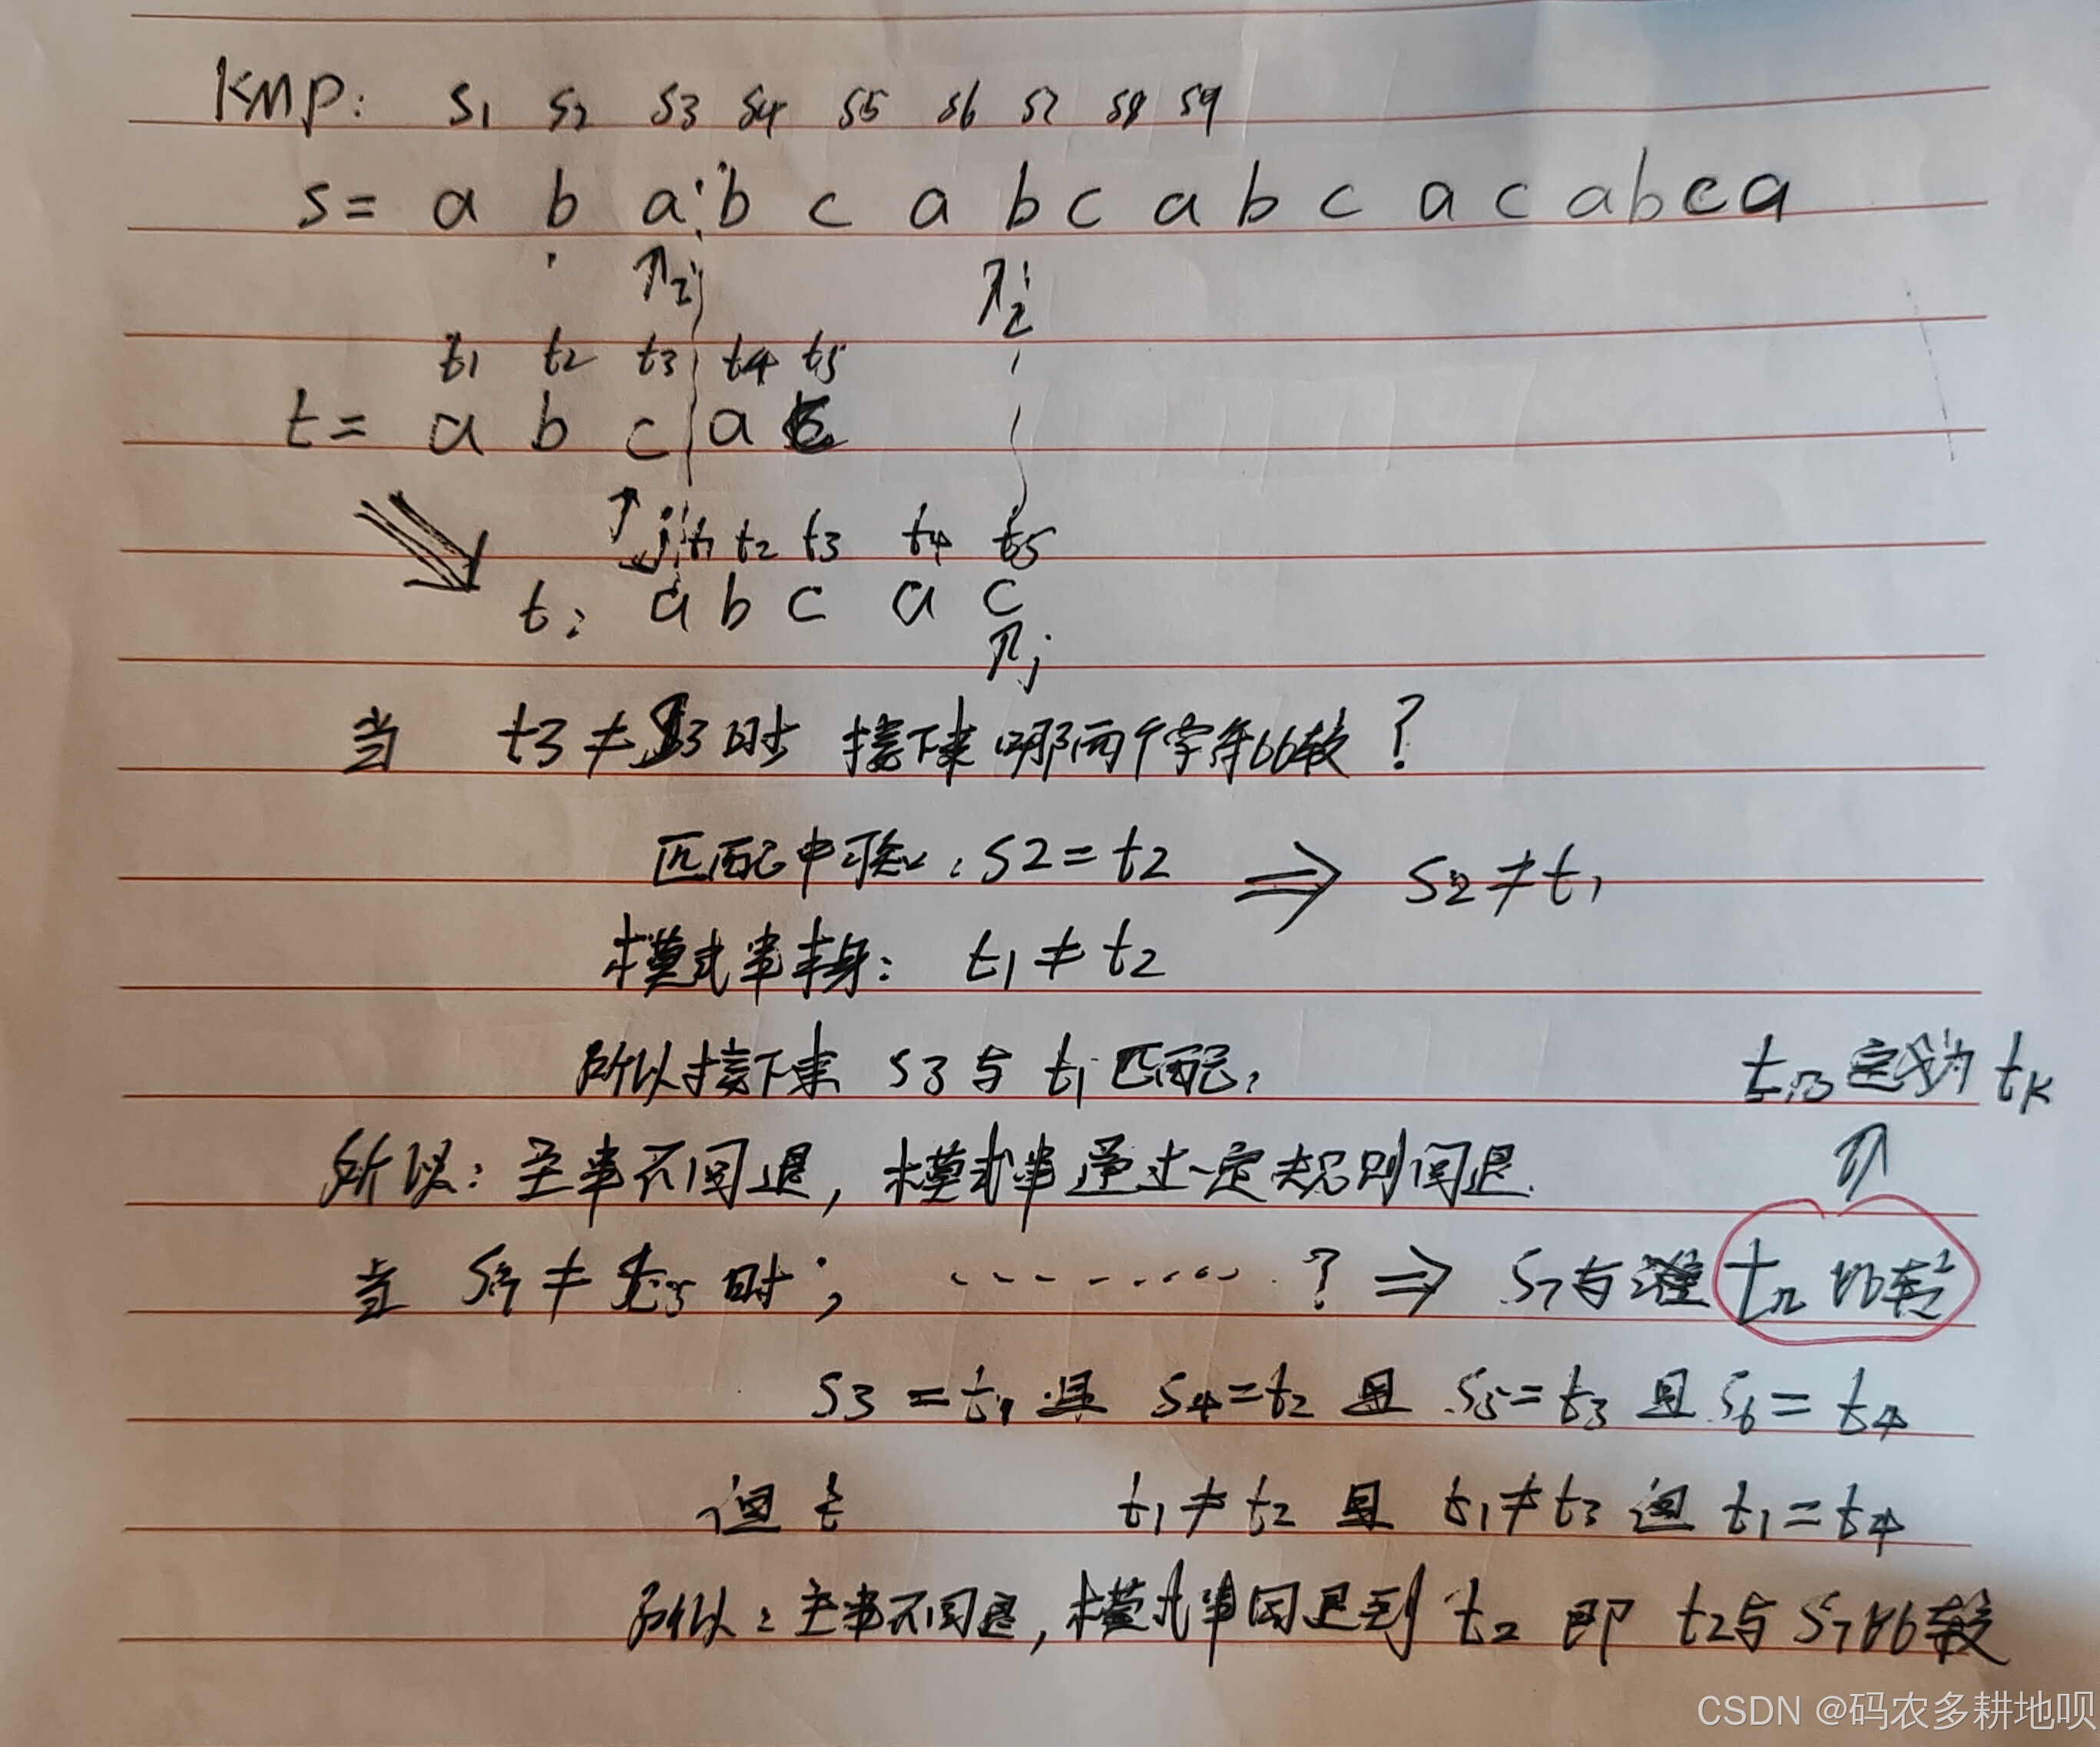 KMP: S1 S2 S3 S4 S5 S6 S7 S8 S9
S= a b a b c a b c a b c a c a b c a
↑i ↑i
t1 t2 t3 t4 t5
t= a b c a c
↑j t1 t2 t3 t4 t5
t: a b c a c
↑j
当 t3≠S3时 接下来哪两个字符比较?
匹配中可知: S2=t2 ⇒ S2≠t1
模式串本身: t1≠t2
所以接下来 S3与t1匹配,
t几定义为tk
所以:主串不回退,模式串通过一定规则回退.
当 S7≠t5时; ………? ⇒ S7与谁t几比较
S3=t1 且 S4=t2 且 S5=t3 且 S6=t4
但 t t1≠t2 且 t1≠t3 但 t1=t4
所以:主串不回退,模式串回退到t2 即 t2与S7比较
CSDN @码农多耕地呗